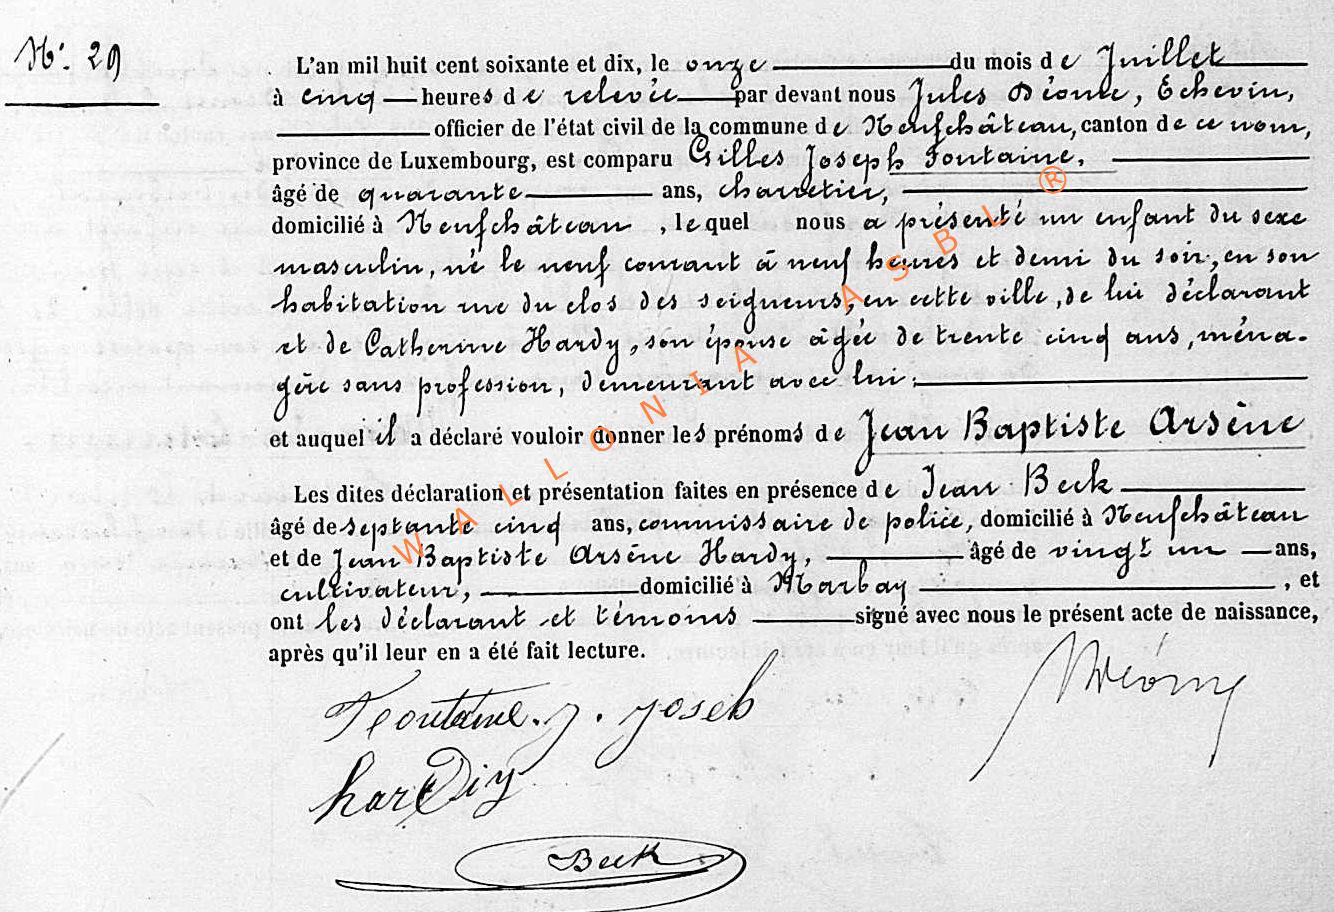 N.° 29
L'an mil huit cent soixante et dix, le onze du mois de Juillet
à cinq heures de relevée par devant nous Jules Déome, Echevin,
officier de l'état civil de la commune de Neufchâteau, canton de ce nom,
province de Luxembourg, est comparu Gilles Joseph Fontaine,
âgé de quarante ans, charretier,
domicilié à Neufchâteau, lequel nous a présenté un enfant du sexe
masculin, né le neuf courant à neuf heures et demi du soir, en son
habitation rue du clos des seigneurs, en cette ville, de lui déclarant
et de Catherine Hardy, son épouse âgée de trente cinq ans, ména-
gère sans profession, demeurant avec lui,
et auquel il a déclaré vouloir donner les prénoms de Jean Baptiste Arsène
Les dites déclaration et présentation faites en présence de Jean Beck
âgé de septante cinq ans, commissaire de police, domicilié à Neufchâteau
et de Jean Baptiste Arsène Hardy, âgé de vingt un ans,
cultivateur, domicilié à Marbay, et
ont les déclarant et témoins signé avec nous le présent acte de naissance,
après qu'il leur en a été fait lecture.
Fontaine. j. joseb
harDiy
Beck
WALLONIA ASBL ®